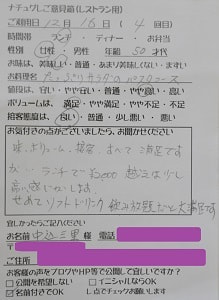 ナチュグレご意見箱(レストラン用)
ご利用日 12月16日 (4回目)
時間帯 ランチ・ディナー・お弁当
性別 女性・男性 年齢 50才代
お味は 美味しい・普通・あまり美味しくない・まずい
お料理名
値段は 安い・やや安い・普通・やや高い・高い
ボリュームは 満足・やや満足・やや不足・不足
接客態度は 良い・普通・少し悪い・悪い
お気付きの点がございましたら、お聞かせください
味、ボリューム、接客、すべて満足です
が、ランチで ¥3000 越えは少し
高い感じがします。
せめてソフトドリンク飲み放題だと大満足です
宜しかったらご記入ください
お名前 中込三里 様 電話
〒
ご住所
お客様の声をブログやHP等で公開して宜しいですか？
公開を希望しない イニシャルならOK
名前付きでOK しるしでチェックお願いします